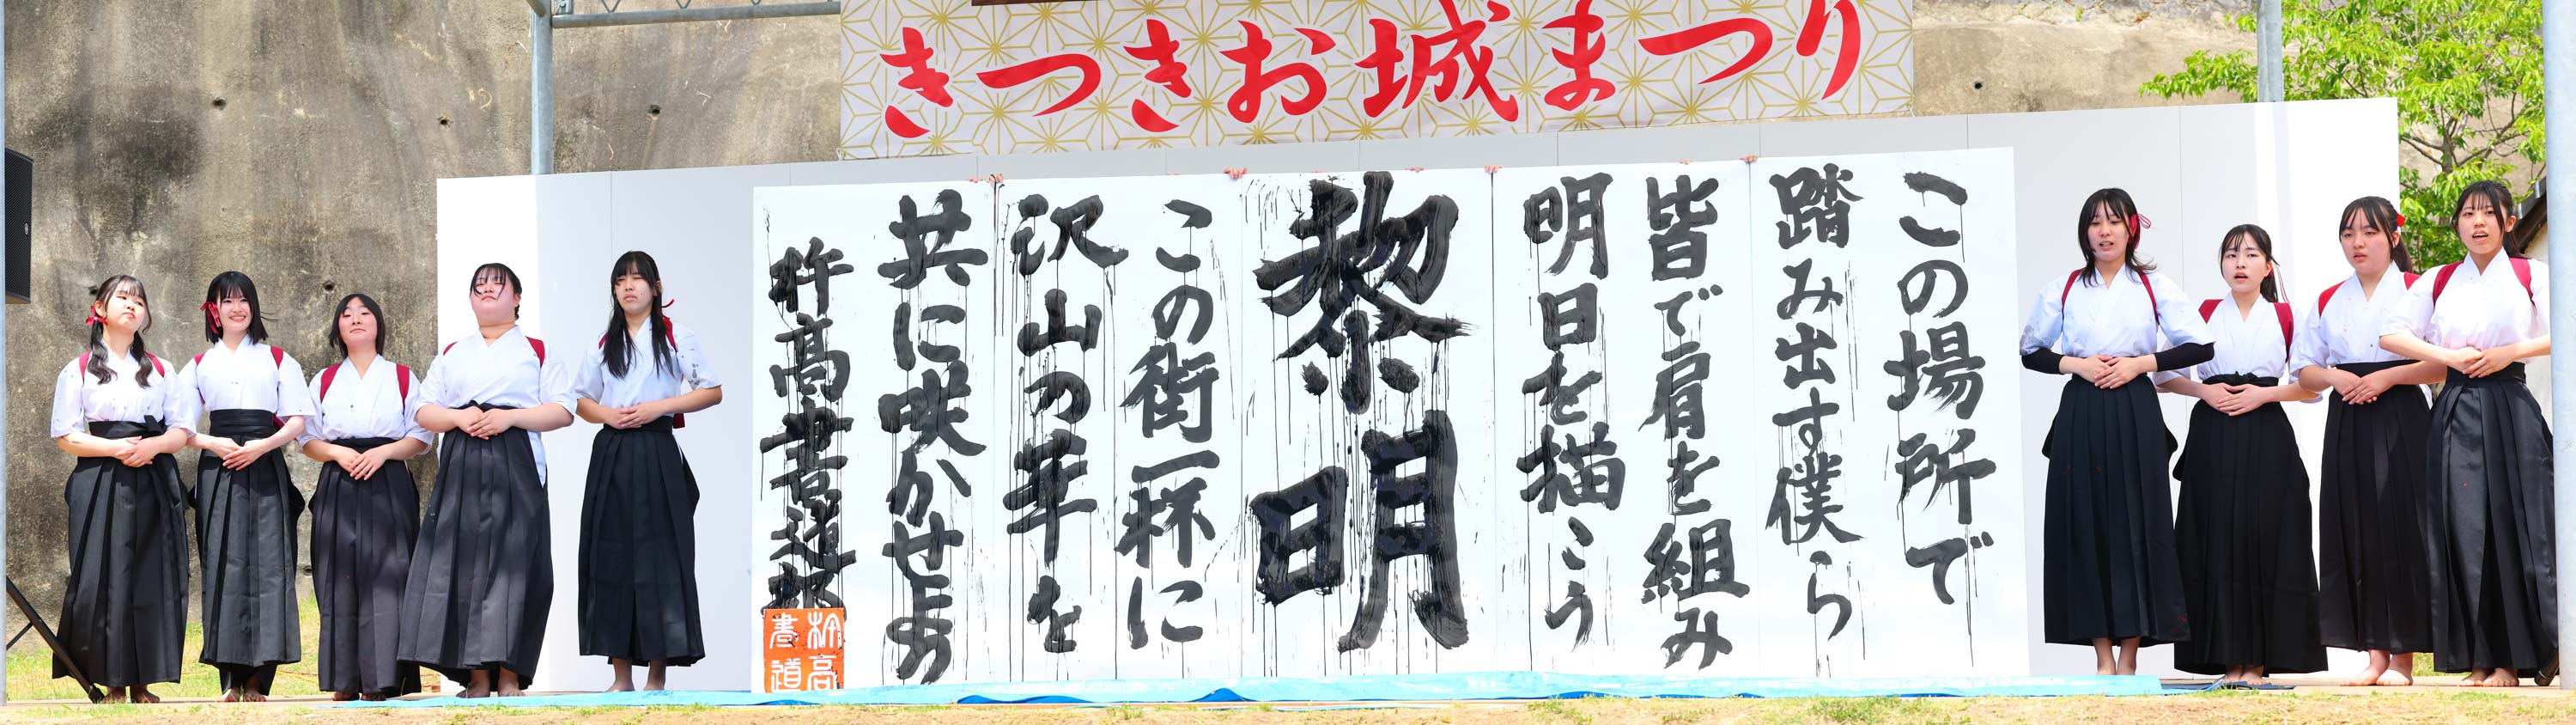 きつきお城まつり
この場所で
踏み出す僕ら
皆で肩を組み
明日を描こう
黎明
この街一杯に
沢山の華を
共に咲かせよう
杵高書道部
杵高
書道